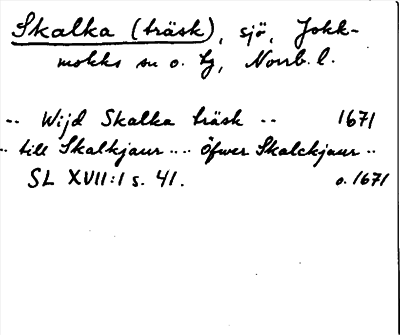 Skalka (träsk), sjö, Jokk-
mokks sn o. tg, Norrb. l.
-- Wijd Skalka träsk -- 1671
-- till Skalkjaur -- -- Öfwer Skalckjaur --
SL XVII:1 s. 41. o. 1671